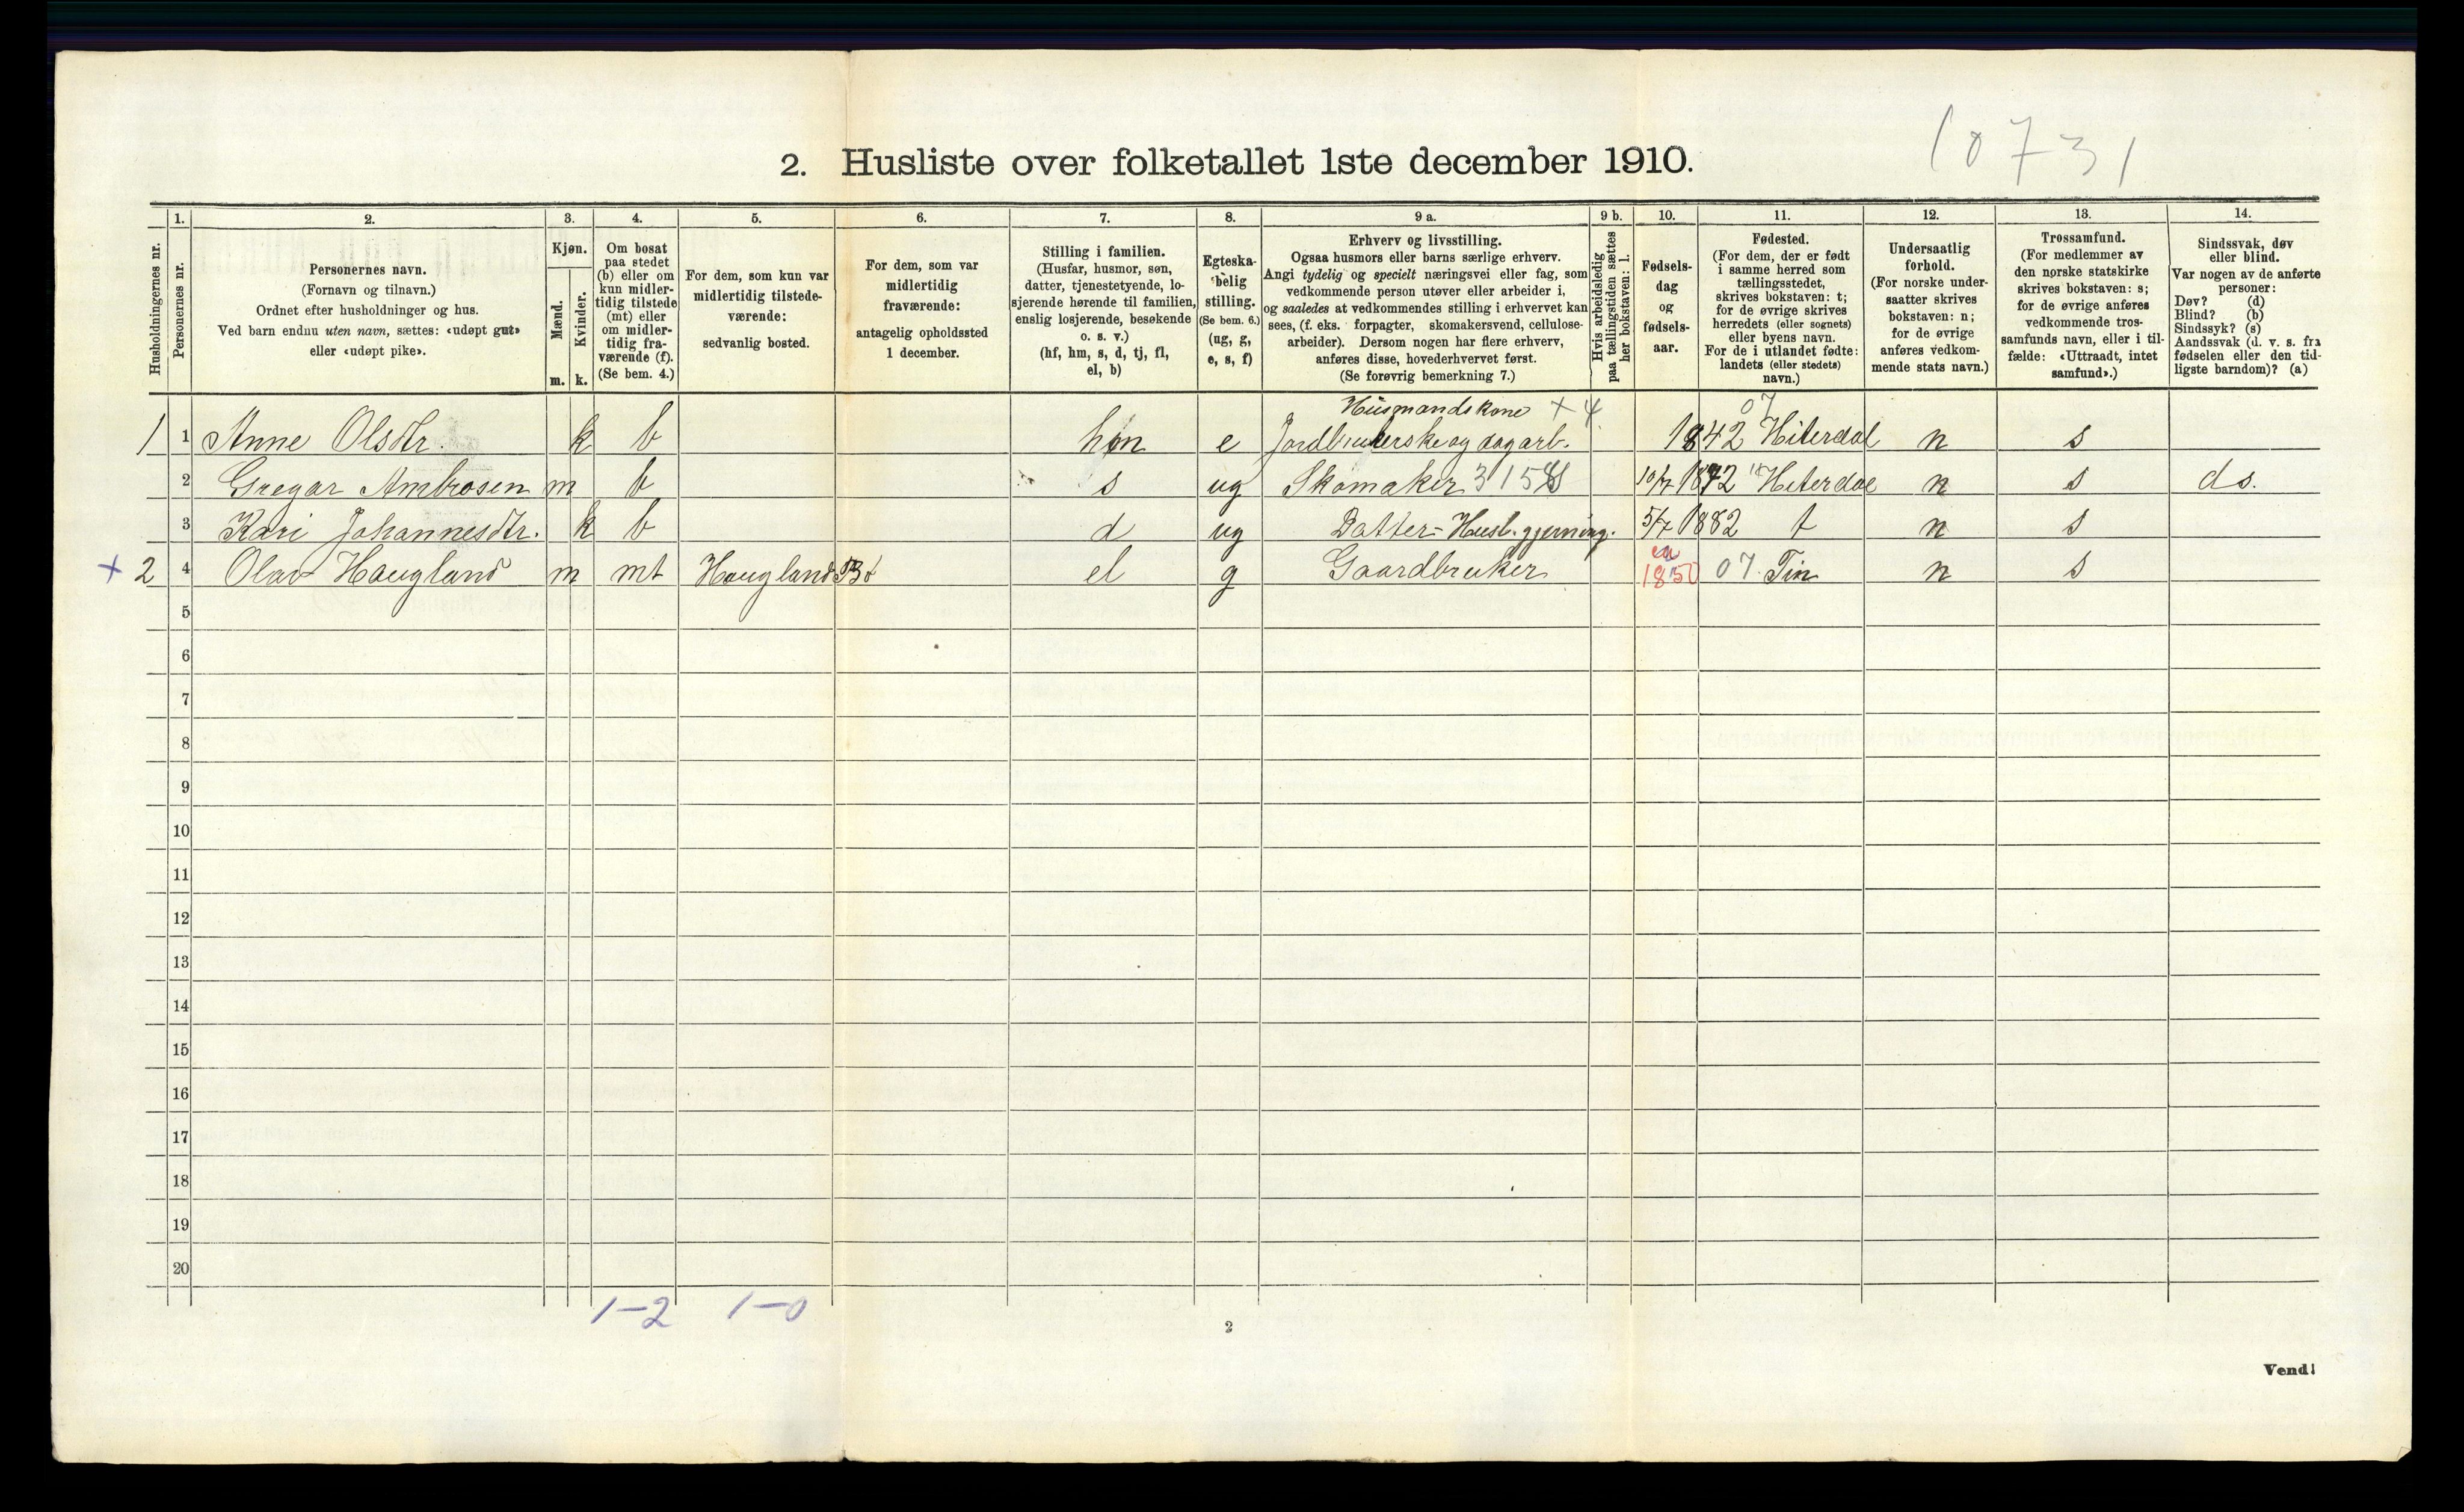 10731
2. Husliste over folketallet 1ste december 1910.
Husholdningernes nr.
1.
Personernes nr.
2.
Personernes navn.
(Fornavn og tilnavn.)
Ordnet efter husholdninger og hus.
Ved barn endnu uten navn, sættes: «udøpt gut»
eller «udøpt pike».
3.
Kjøn.
Mænd.
Kvinder.
m. k.
4.
Om bosat
paa stedet
(b) eller om
kun midler-
tidig tilstede
(mt) eller
om midler-
tidig fra-
værende (f).
(Se bem. 4.)
5.
For dem, som kun var
midlertidig tilstede-
værende:
sedvanlig bosted.
6.
For dem, som var
midlertidig
fraværende:
antagelig opholdssted
1 december.
7.
Stilling i familien.
(Husfar, husmor, søn,
datter, tjenestetyende, lo-
sjerende hørende til familien,
enslig losjerende, besøkende
o. s. v.)
(hf, hm, s, d, tj, fl,
el, b)
8.
Egteska-
belig
stilling.
(Se bem. 6.)
(ug, g,
e, s, f)
9 a.
Erhverv og livsstilling.
Ogsaa husmors eller barns særlige erhverv.
Angi tydelig og specielt næringsvei eller fag, som
vedkommende person utøver eller arbeider i,
og saaledes at vedkommendes stilling i erhvervet kan
sees, (f. eks. forpagter, skomakersvend, cellulose-
arbeider). Dersom nogen har flere erhverv,
anføres disse, hovederhvervet først.
(Se forøvrig bemerkning 7.)
9 b.
Hvis arbeidsledig
paa tællingstiden sættes
her bokstaven: l.
10.
Fødsels-
dag
og
fødsels-
aar.
11.
Fødested.
(For dem, der er født
i samme herred som
tællingsstedet,
skrives bokstaven: t;
for de øvrige skrives
herredets (eller sognets)
eller byens navn.
For de i utlandet fødte:
landets (eller stedets)
navn.)
12.
Undersaatlig
forhold.
(For norske under-
saatter skrives
bokstaven: n;
for de øvrige
anføres vedkom-
mende stats navn.)
13.
Trossamfund.
(For medlemmer av
den norske statskirke
skrives bokstaven: s;
for de øvrige anføres
vedkommende tros-
samfunds navn, eller i til-
fælde: «Uttraadt, intet
samfund».)
14.
Sindssvak, døv
eller blind.
Var nogen av de anførte
personer:
Døv? (d)
Blind? (b)
Sindssyk? (s)
Aandssvak (d. v. s. fra
fødselen eller den tid-
ligste barndom)? (a)
Husmandskone + 4 07
1 1 Anne Olsdtr. k b hm e Jordbrukerske og dagarb. 1842 Hiterdal n s
2 Gregar Ambrosen m b s ug Skomaker 3158 10/7 1872 Hiterdal n s ds.
3 Kari Johannesdtr. k b d ug Datter- Husl. gjerning. 5/7 1882 t n s
+ 2 4 Olav Haugland m mt Haugland Bø el g Gaardbruker ca 1850 07 Tin n s
5
6
7
8
9
10
11
12
13
14
15
16
17
18
19
20
1-2 1-0
2
Vend!